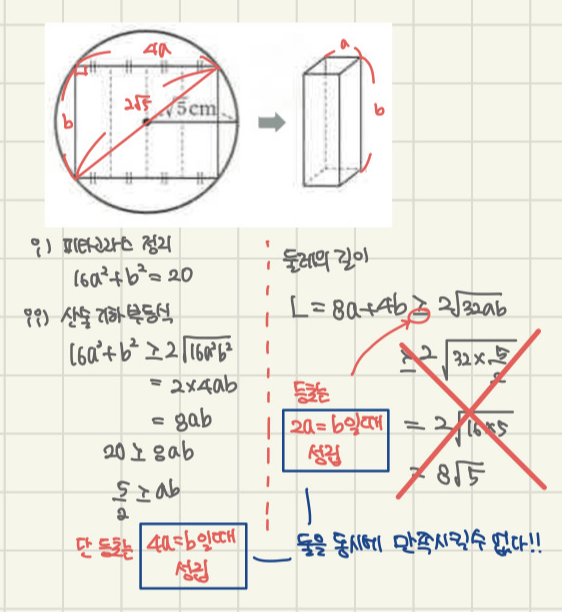 4a
b
2√5
√5cm
a
b
i) 피타고라스 정리
16a²+b²=20
ii) 산술 기하 부등식
16a²+b² ≥ 2√16a²b²
= 2×4ab
= 8ab
20 ≥ 8ab
5/2 ≥ ab
단 등호는 4a=b일때
성립
둘레의 길이
L = 8a+4b ≥ 2√32ab
≥ 2√32×5/2
= 2√16×5
= 8√5
등호는
2a=b일때
성립
둘을 동시에 만족시킬수 없다!!